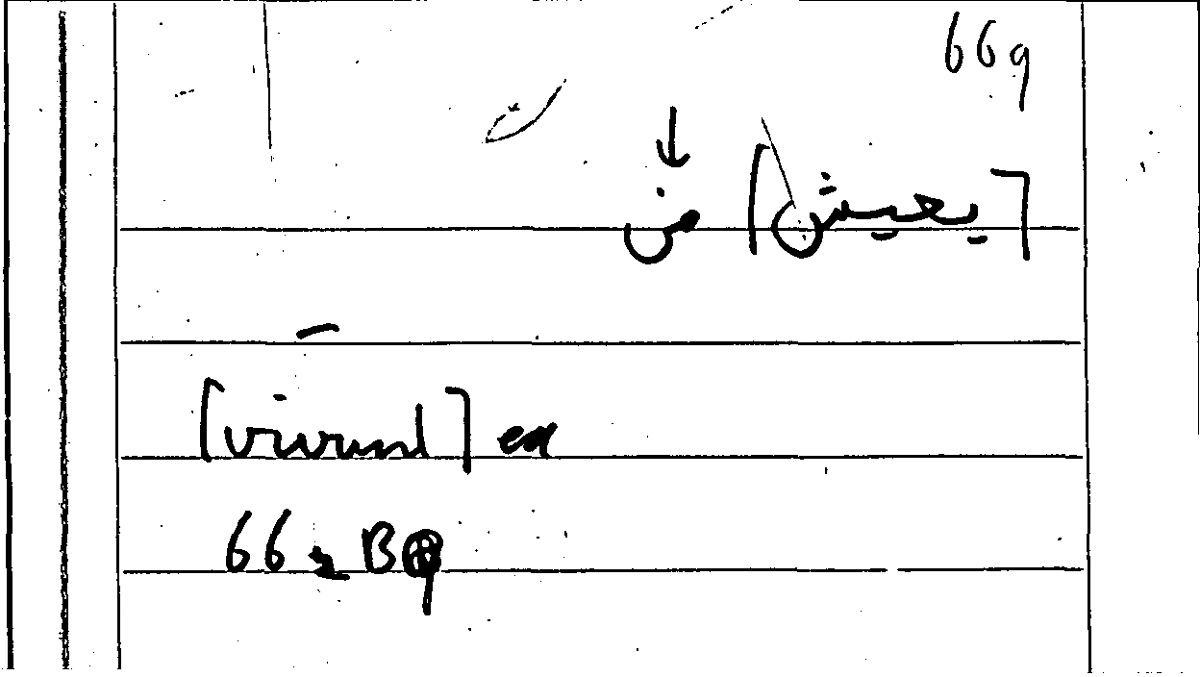 66q
[يعيش] من
[vivunt] ex
66 B